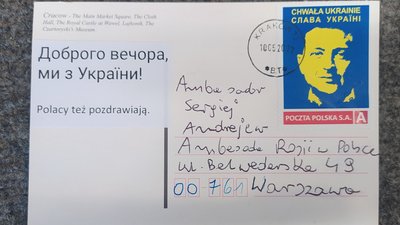 Cracow - The Main Market Square, The Cloth
Hall, The Royal Castle at Wawel, Lajkonik, The
Czartoryski's Museum
Доброго вечора,
ми з України!
Polacy też pozdrawiają.
KRAKÓW
CHWAŁA UKRAINIE
СЛАВА УКРАЇНІ
POCZTA POLSKA S.A. A
Ambasador
Sergiej
Andrejew
Ambasada Rosji w Polsce
ul. Belwederska 49
00-761 Warszawa